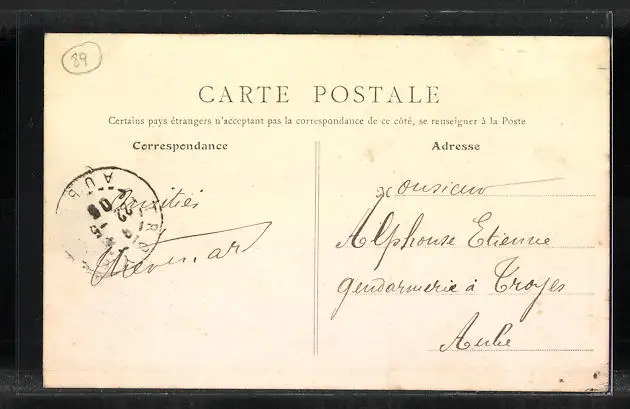 89
CARTE POSTALE
Certains pays étrangers n'acceptant pas la correspondance de ce côté, se renseigner à la Poste
Correspondance
Amitiés
Adresse
Monsieur
Alphonse Etienne
gendarmerie à Troyes
Aube